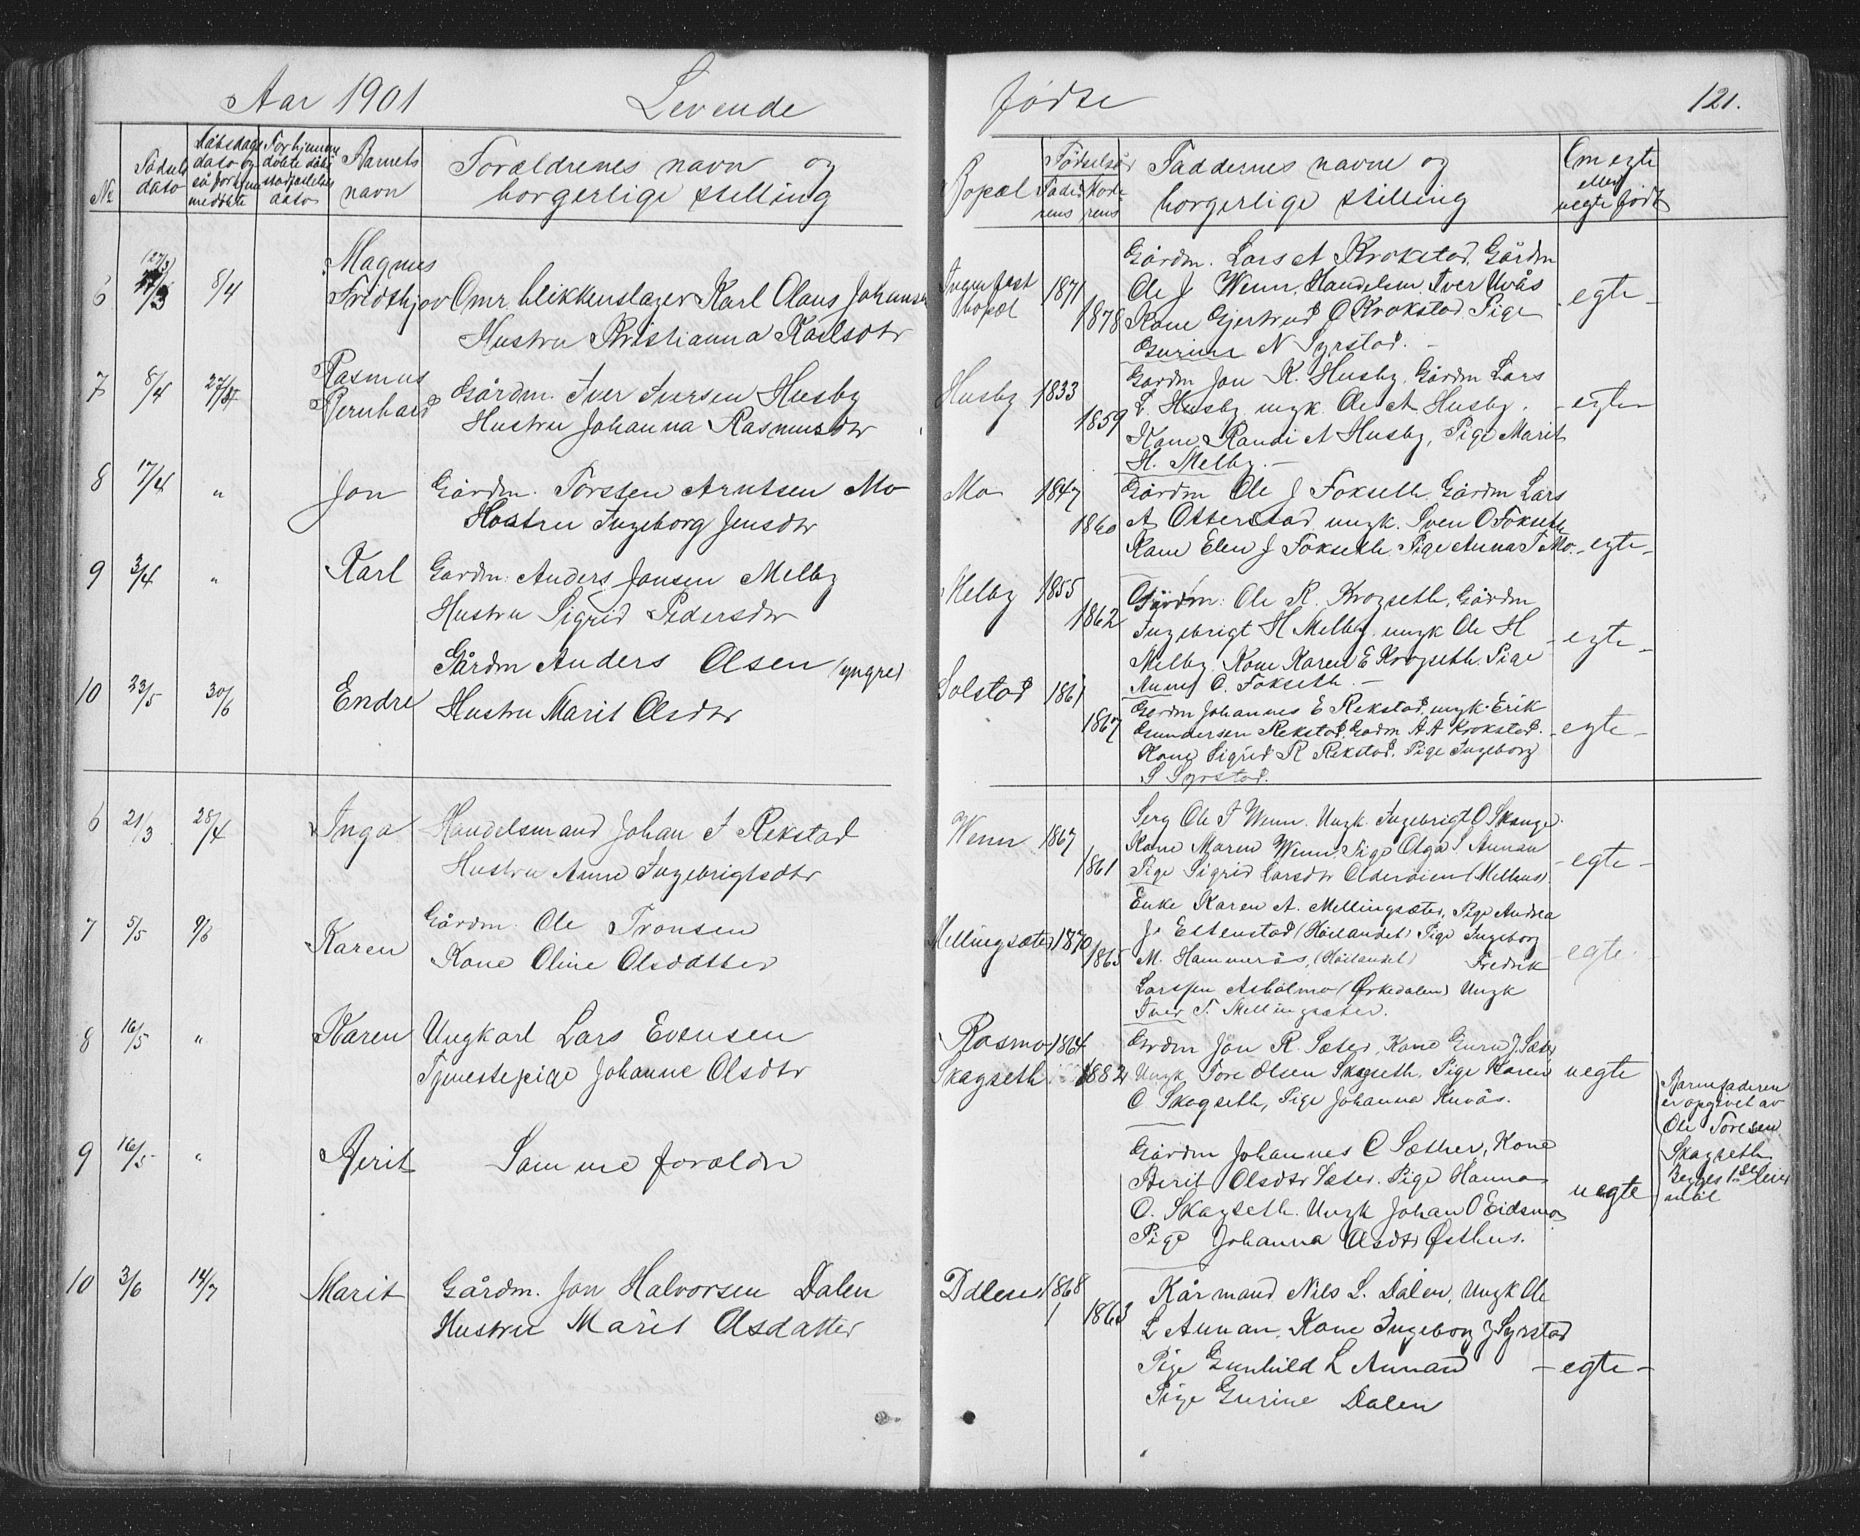 Aar 1901 Levende fødte 121.
No Fødsels dato Dåbsdags dato og så for hjemmedøbte For hjemmedøbte dåbs stadfæstelses dato Barnets navn Forældrenes navn og borgerlige stilling Bopæl Fødselsår Faderens Moderens Faddernes navne og borgerlige stilling Om egte eller uegte født
6 (27/3) 8/4 Magnus
Fridthjov Omr. blikkenslager Karl Olaus Johansen
Hustru Kristianna Karlsdtr
Ingen fast bopæl 1871 1878
Gårdm. Lars A Krokstad, Gårdm
Ole J Wenn, Handelsm. Iver Uvås
Kone Gjertrud O Krokstad Pige
Gurine N Syrstad. –
egte –
7 8/4 27/5 Rasmus
Bernhard Gårdm. Iver Iversen Husby
Hustru Johanna Rasmusdtr
Husby 1833 1859
Gårdm Jon K. Husby, Gårdm Lars
L. Husby, ungk. Ole A Husby.
Kone Randi A Husby, Pige Marit
H. Melby. –
– egte
8 17/4 " Jon Gårdm. Torsten Arntsen Mo
Hustru Ingeborg Jensdtr
Mo 1847 1860
Gårdm Ole J Fokseth, Gårdm Lars
A Otterstad, ungk. Sven O Fokseth
Kone Elen J Fokseth, Pige Anna T Mo.
– egte –
9 3/4 " Karl Gårdm. Anders Jonsen Melby
Hustru Sigrid Pedersdtr
Melby 1855 1862
Gårdm. Ole R. Krogseth, Gårdm
Ingebrigt H Melby, ungk Ole H
Melby. Kone Karen E Krogseth. Pige
Anne O. Fokseth. –
– egte –
10 23/5 30/6 Endre Gårdm Anders Olsen (yngre)
Hustru Marit Olsdtr
Solstad 1861 1867
Gårdm Johannes E Rekstad, ungk. Erik
Gundersen Rekstad, Gårdm A A Krokstad.
Kone Sigrid R Rekstad. Pige Ingeborg
S Syrstad.
– egte –
6 21/3 28/4 Inga Handelsmand Johan I Rekstad
Hustru Anne Ingebrigtsdtr
Wenn 1867 1861
Serg Ole I Wenn. Ungk. Ingebrigt O Skauge.
Kone Maren Wenn, Pige Olga S. Aunan
Pige Sigrid Larsdtr Olderøien (Melhus)
– egte –
7 5/5 9/6 Karen Gårdm. Ole Tronsen
Kone Oline Olsdatter
Mellingsæter 1870 1865
Enke Karen A. Mellingsæter, Pige Andrea
J. Ettenstad (Høilandet) Pige Ingeborg
M. Hammerås, (Høilandet) Fredrik
Larssen Asbølmo (Ørkedalen) Ungk
Iver T. Mellingsæter.
– egte.
8 16/5 " Karen Ungkarl Lars Evensen
Tjenestepige Johanne Olsdtr
Rosmo 1864
Skagseth 1882
Grdm Jon R. Sæter, Kone Guru J. Sæter
Ungk Tore Olsen Skagseth, Pige Karen
O Skagseth, Pige Johanna Kuvås.
uegte
Barnefaderen
er opgivet av
Ole Toresen
Skagseth
Begges 1ste leiermål
9 16/5 " Berit Samme forældre
Gårdm Johannes O Sæther, Kone
Berit Olsdtr Sæter. Pige Hanna
O. Skagseth. Ungk Johan O Eidsmo
Pige Johanna Olsdtr Østhus.
uegte
10 3/6 14/7 Marit Gårdm. Jon Halvorsen Dalen
Hustru Marit Olsdatter
Dalen 1868 1863
Kårmand Nils L. Dalen, Ungk Ole
L Aunan, Kone Ingeborg J Syrstad
Pige Gunhild L Aunan
Pige Gurine Dalen
– egte –